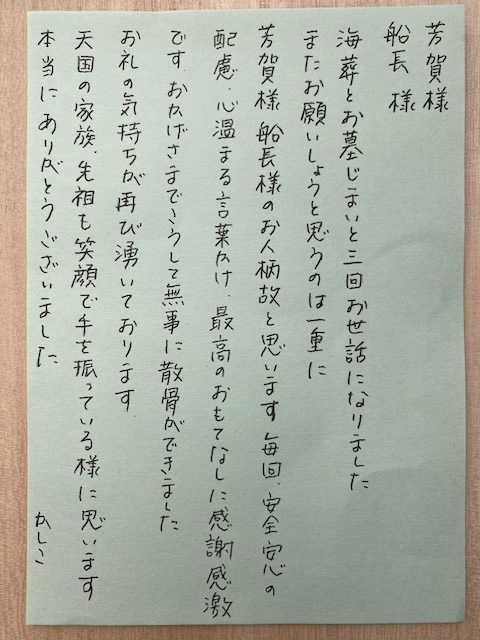 芳賀様
船長 様
海葬とお墓じまいと三回お世話になりました
またお願いしようと思うのは一重に
芳賀様 船長様のお人柄故と思います 毎回、安全安心の
配慮、心温まる言葉かけ、最高のおもてなしに感謝感激
です。おかげさまでこうして無事に散骨ができました
お礼の気持ちが再び湧いております。
天国の家族、先祖も笑顔で手を振っている様に思います
本当にありがとうございました
かしこ